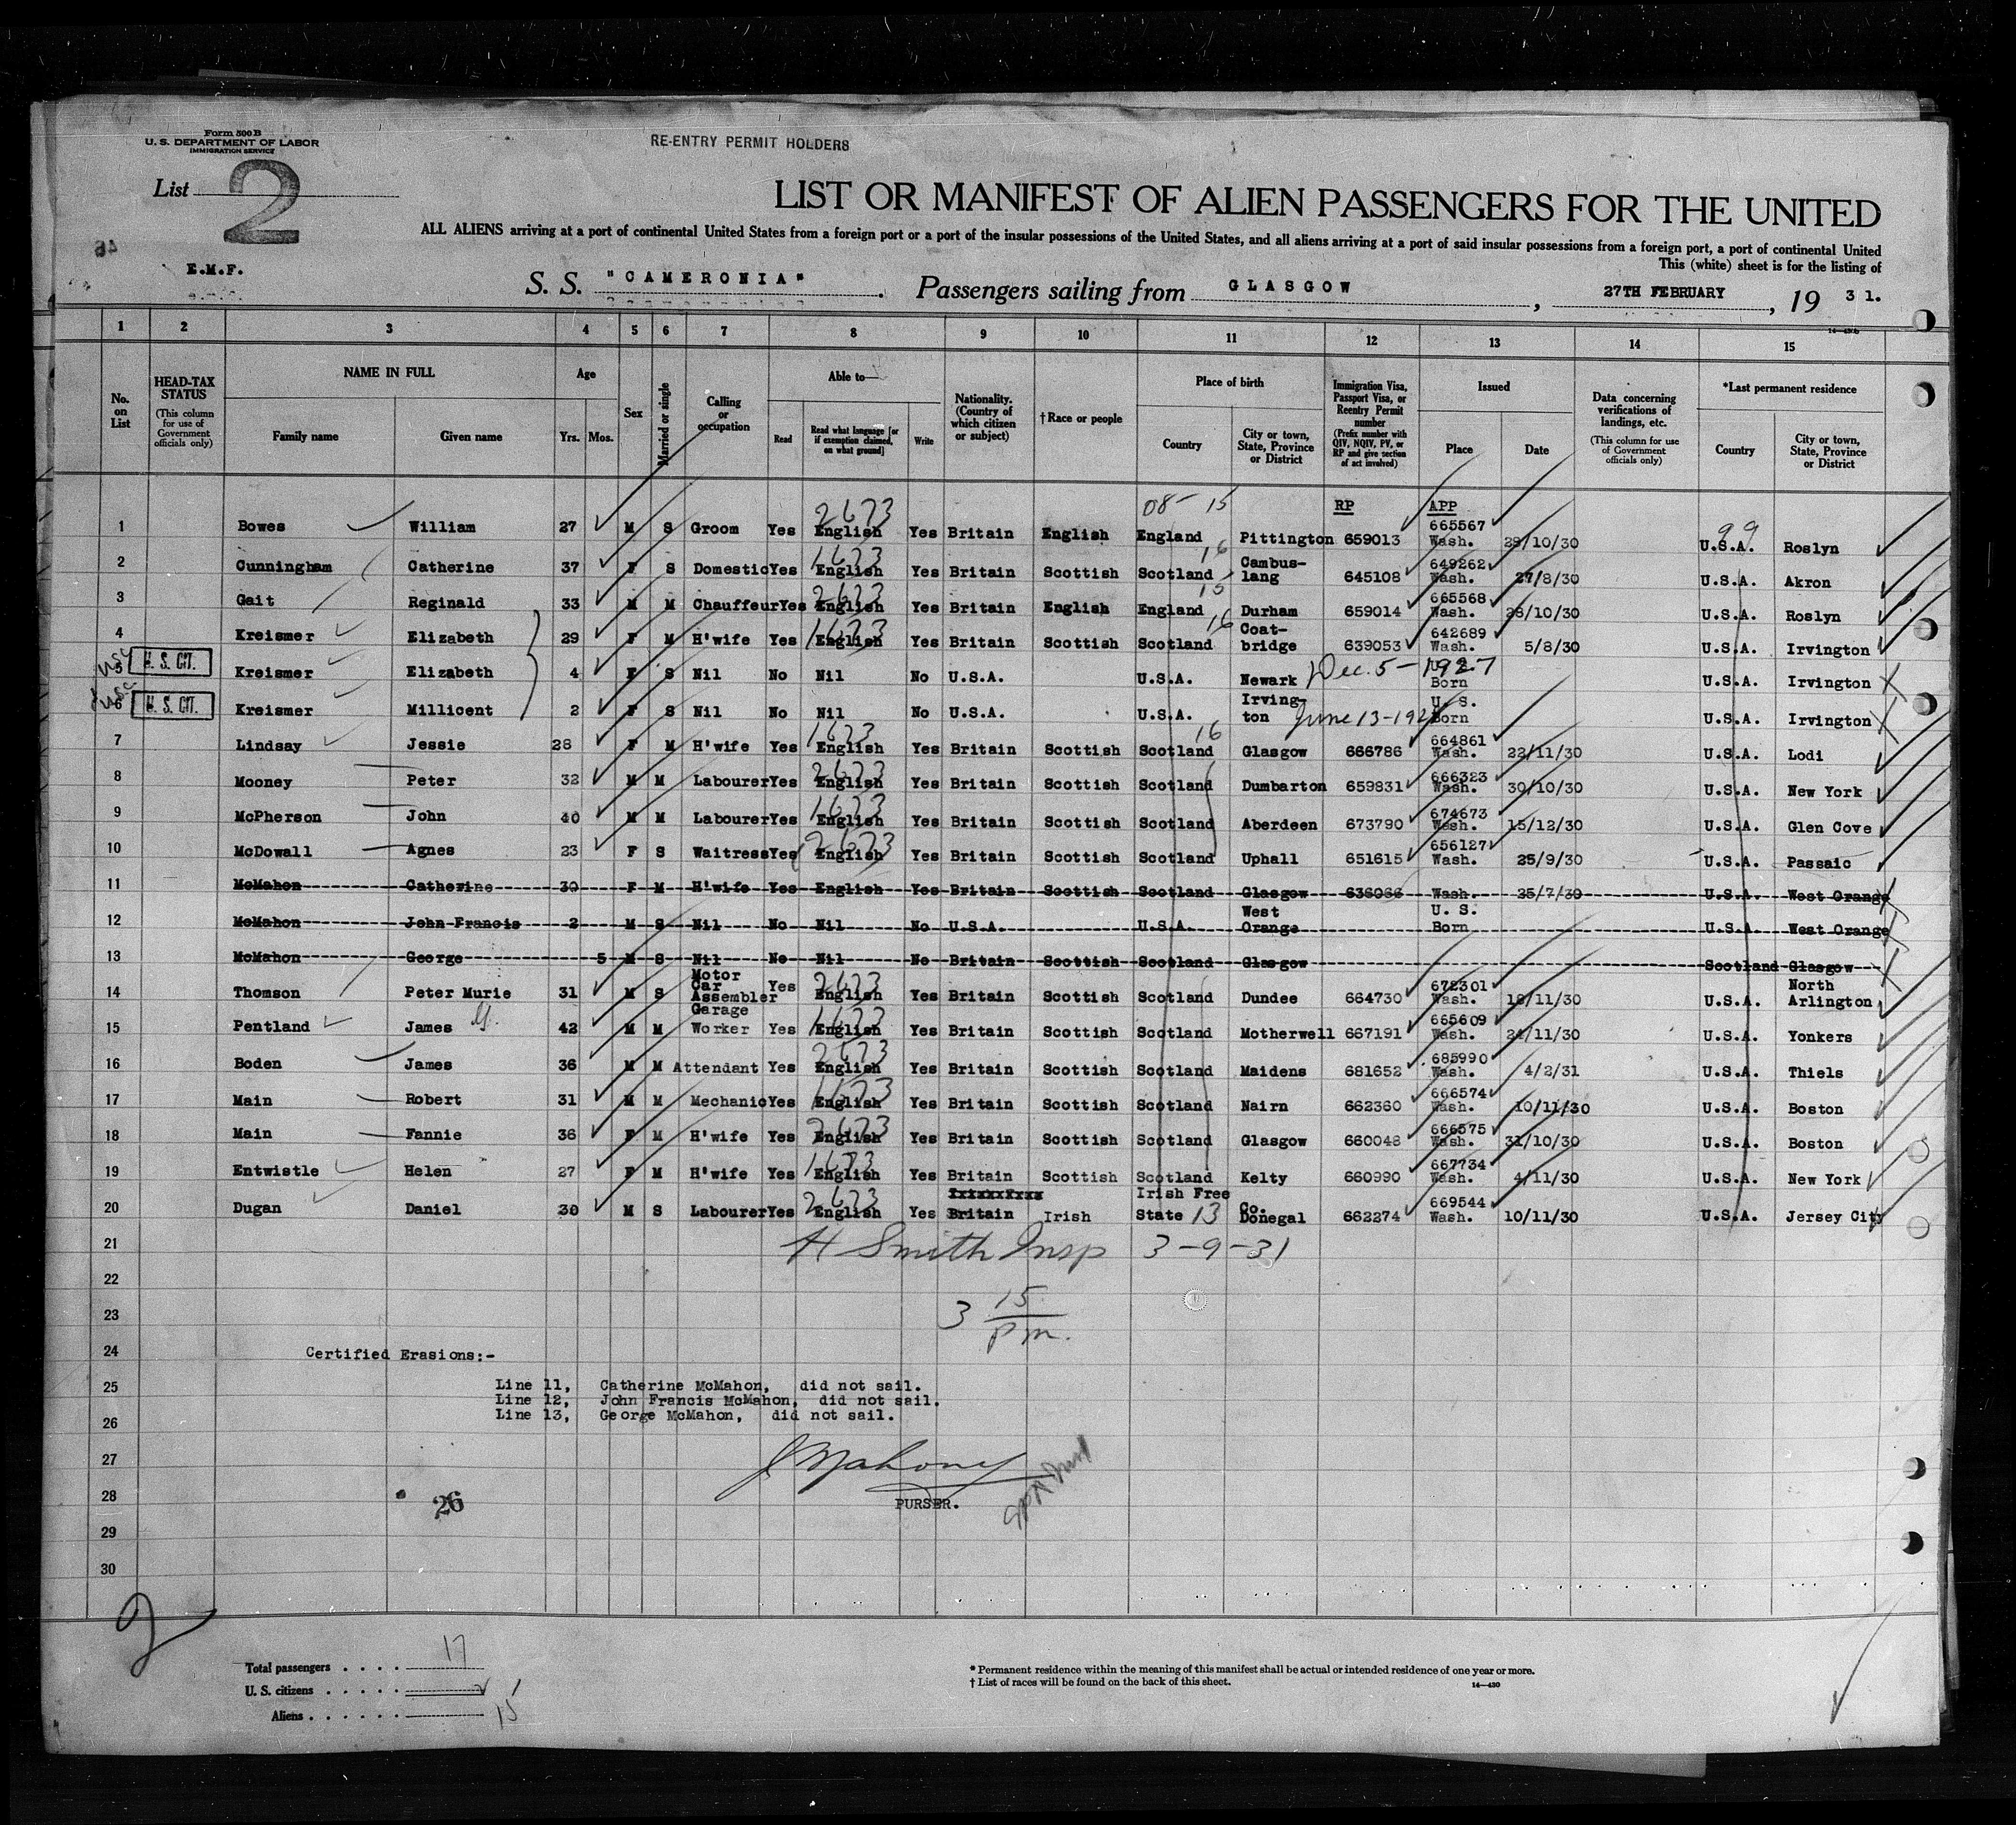 Form 500 B
U. S. DEPARTMENT OF LABOR
IMMIGRATION SERVICE
RE-ENTRY PERMIT HOLDERS
List 2
LIST OR MANIFEST OF ALIEN PASSENGERS FOR THE UNITED
ALL ALIENS arriving at a port of continental United States from a foreign port or a port of the insular possessions of the United States, and all aliens arriving at a port of said insular possessions from a foreign port, a port of continental United
This (white) sheet is for the listing of
E.M.F.
S. S. "CAMERONIA". Passengers sailing from GLASGOW, 27TH FEBRUARY, 19 31.
1 2 3 4 5 6 7 8 9 10 11 12 13 14 15
No. on List
HEAD-TAX STATUS (This column for use of Government officials only)
NAME IN FULL
Family name
Given name
Age
Yrs. Mos.
Sex
Married or single
Calling or occupation
Able to—
Read
Read what language [or if exemption claimed, on what ground]
Write
Nationality. (Country of which citizen or subject)
† Race or people
Place of birth
Country
City or town, State, Province or District
Immigration Visa, Passport Visa, or Reentry Permit number (Prefix number with QIV, NQIV, PV, or RP and give section of act involved)
Issued
Place
Date
Data concerning verifications of landings, etc. (This column for use of Government officials only)
*Last permanent residence
Country
City or town, State, Province or District
08- 15 RP APP
1 Bowes William 27 M S Groom Yes 2673 English Yes Britain English England Pittington 659013 665567 Wash. 28/10/30 99 U.S.A. Roslyn
2 Cunningham Catherine 37 F S Domestic Yes 1673 English Yes Britain Scottish Scotland 16 Cambus-lang 645108 649262 Wash. 27/8/30 U.S.A. Akron
3 Gait Reginald 33 M M Chauffeur Yes 2673 English Yes Britain English England 15 Durham 659014 665568 Wash. 28/10/30 U.S.A. Roslyn
4 Kreismer Elizabeth 29 F M H'wife Yes 1673 English Yes Britain Scottish Scotland 16 Coat-bridge 639053 642689 Wash. 5/8/30 U.S.A. Irvington
5 USC U. S. CIT. Kreismer Elizabeth 4 F S Nil No Nil No U.S.A. U.S.A. Newark Dec. 5-1927 Born U.S.A. Irvington
6 USC U. S. CIT. Kreismer Millicent 2 F S Nil No Nil No U.S.A. U.S.A. Irving-ton June 13-192 U. S. Born U.S.A. Irvington
7 Lindsay Jessie 28 F M H'wife Yes 1673 English Yes Britain Scottish Scotland 16 Glasgow 666786 664861 Wash. 22/11/30 U.S.A. Lodi
8 Mooney Peter 32 M M Labourer Yes 2673 English Yes Britain Scottish Scotland Dumbarton 659831 666323 Wash. 30/10/30 U.S.A. New York
9 McPherson John 40 M M Labourer Yes 1673 English Yes Britain Scottish Scotland Aberdeen 673790 674673 Wash. 15/12/30 U.S.A. Glen Cove
10 McDowall Agnes 23 F S Waitress Yes 2673 English Yes Britain Scottish Scotland Uphall 651615 656127 Wash. 25/9/30 U.S.A. Passaic
11 McMahon Catherine 30 F M H'wife Yes English Yes Britain Scottish Scotland Glasgow 636066 Wash. 25/7/30 U.S.A. West Orange
12 McMahon John Francis 2 M S Nil No Nil No U.S.A. U.S.A. West Orange U. S. Born U.S.A. West Orange
13 McMahon George 5 M S Nil No Nil No Britain Scottish Scotland Glasgow Scotland Glasgow
14 Thomson Peter Murie 31 M S Motor Car Assembler Yes 2673 English Yes Britain Scottish Scotland Dundee 664730 672301 Wash. 18/11/30 U.S.A. North Arlington
15 Pentland James 42 M M Garage Worker Yes 1673 English Yes Britain Scottish Scotland Motherwell 667191 665609 Wash. 24/11/30 U.S.A. Yonkers
16 Boden James 36 M M Attendant Yes 2673 English Yes Britain Scottish Scotland Maidens 681652 685990 Wash. 4/2/31 U.S.A. Thiels
17 Main Robert 31 M M Mechanic Yes 1673 English Yes Britain Scottish Scotland Nairn 662360 666574 Wash. 10/11/30 U.S.A. Boston
18 Main Fannie 36 F M H'wife Yes 2673 English Yes Britain Scottish Scotland Glasgow 660048 666575 Wash. 31/10/30 U.S.A. Boston
19 Entwistle Helen 27 F M H'wife Yes 1673 English Yes Britain Scottish Scotland Kelty 660990 667734 Wash. 4/11/30 U.S.A. New York
20 Dugan Daniel 30 M S Labourer Yes 2673 English Yes Britain Irish Irish Free State 13 Co. Donegal 662274 669544 Wash. 10/11/30 U.S.A. Jersey City
21 H Smith Insp 3-9-31
22
23 3 15 pm.
24 Certified Erasions:-
25 Line 11, Catherine McMahon, did not sail.
Line 12, John Francis McMahon, did not sail.
26 Line 13, George McMahon, did not sail.
27 J Mahony
28 26 PURSER.
29
30
2
Total passengers . . . . 17
U. S. citizens . . . . . 2
Aliens . . . . . . 15
* Permanent residence within the meaning of this manifest shall be actual or intended residence of one year or more.
† List of races will be found on the back of this sheet.
14—430